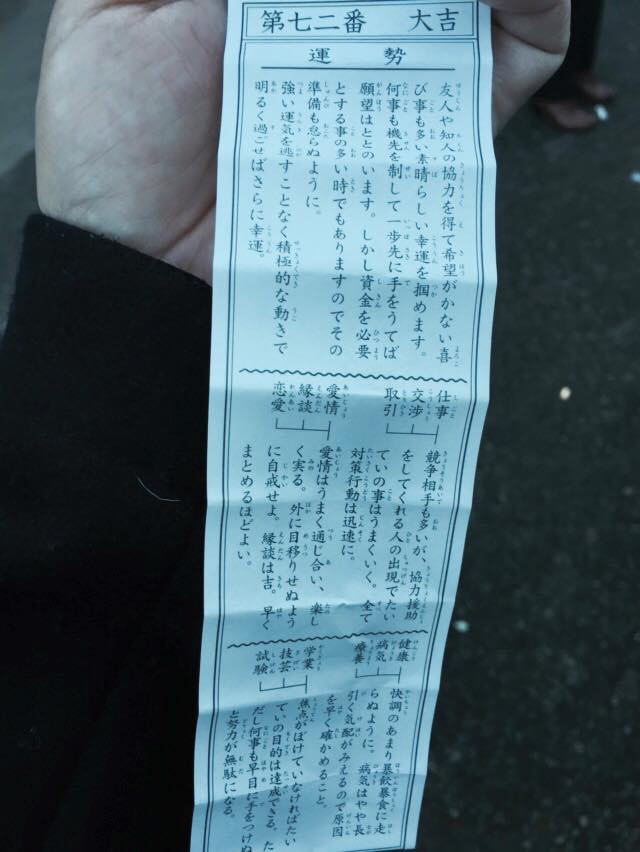 第七二番 大吉
運勢
友人や知人の協力を得て希望がかない喜
び事も多い素晴らしい幸運を掴めます。
何事も機先を制して一歩先に手をうてば
願望はととのいます。しかし資金を必要
とする事の多い時でもありますのでその
準備も怠らぬように。
強い運気を逃すことなく積極的な動きで
明るく過ごせばさらに幸運。
仕事
交渉
取引
競争相手も多いが、協力援助
をしてくれる人の出現でたい
ていの事はうまくいく。全て
対策行動は迅速に。
愛情
縁談
恋愛
愛情はうまく通じ合い、楽し
く実る。外に目移りせぬよう
に自戒せよ。縁談は吉。早く
まとめるほどよい。
健康
病気
療養
快調のあまり暴飲暴食に走
らぬように。病気はやや長
引く気配がみえるので原因
を早く確かめること。
学業
技芸
試験
焦点がぼけていなければたい
ていの目的は達成できる。た
だし何事も早目に手をつけぬ
と努力が無駄になる。